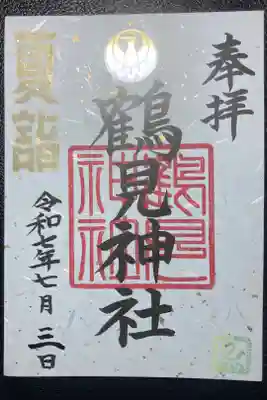 奉拝
夏詣
鶴見神社
鶴見神社
令和七年七月三日